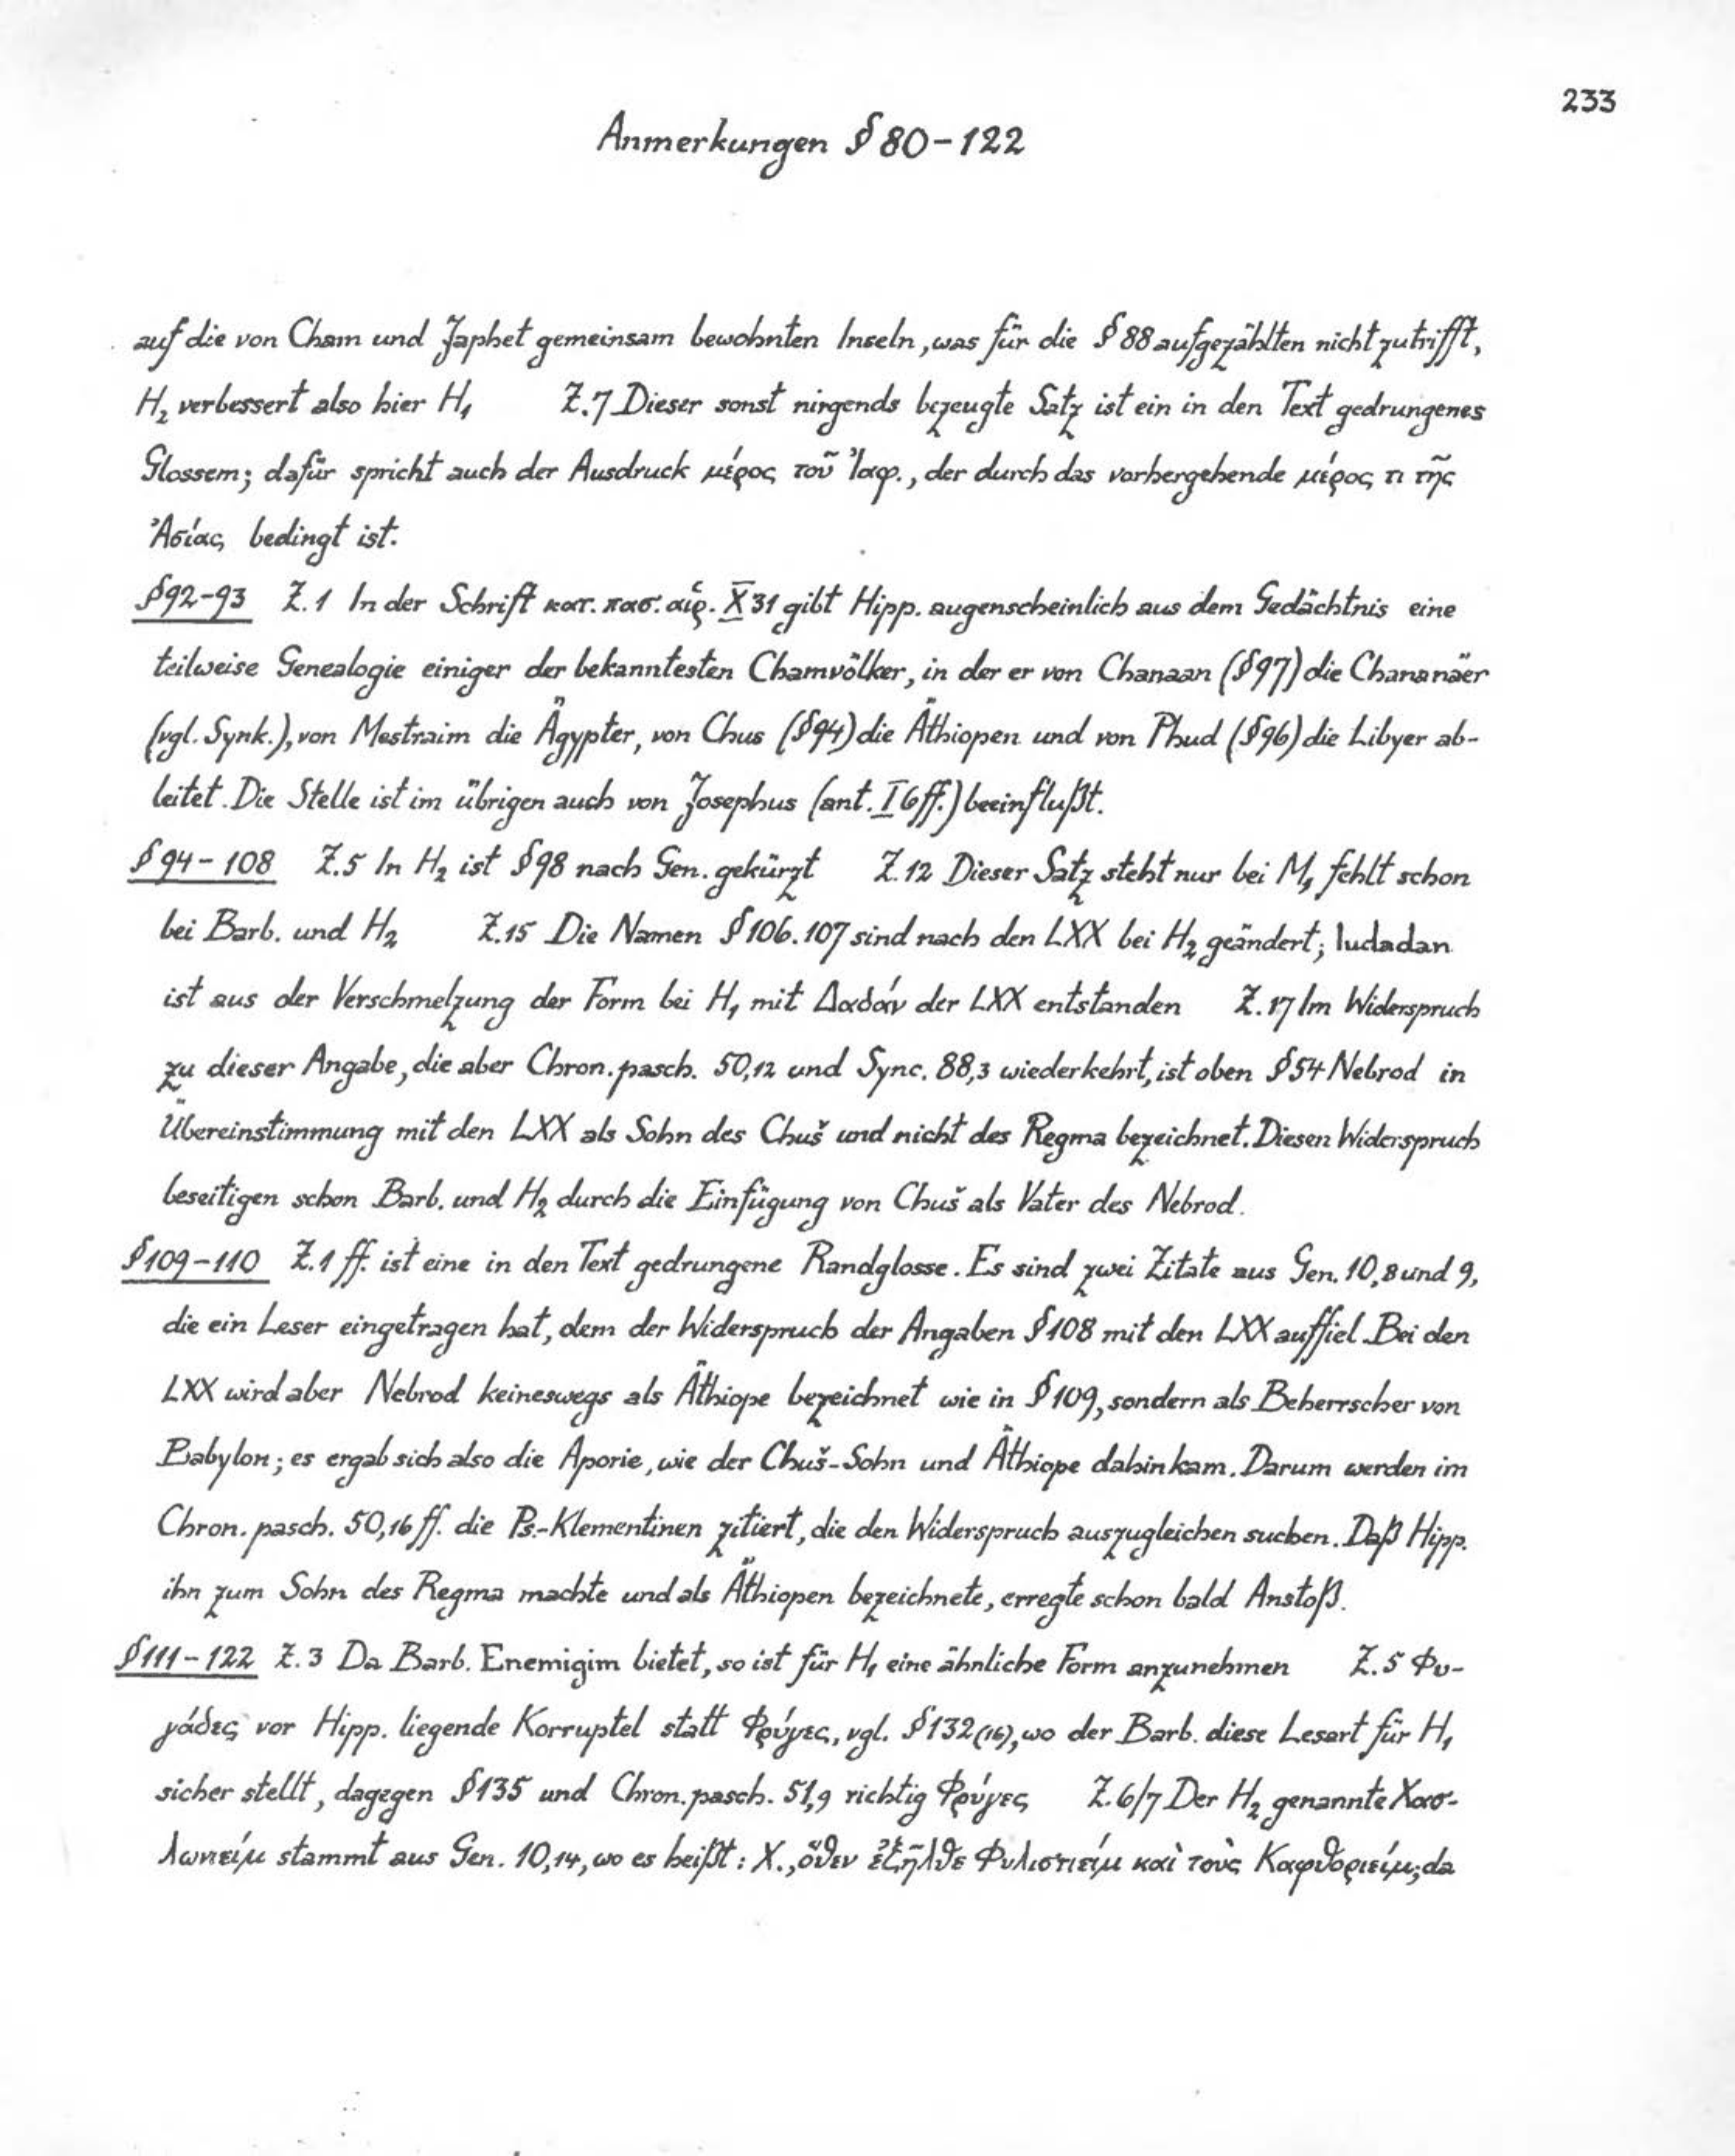 233
Anmerkungen § 80-122
auf die von Cham und Japhet gemeinsam bewohnten Inseln, was für die § 88 aufgezählten nicht zutrifft,
H₂ verbessert also hier H₁ Z.7 Dieser sonst nirgends bezeugte Satz ist ein in den Text gedrungenes
Glossem; dafür spricht auch der Ausdruck μέρος τοῦ Ἰαφ., der durch das vorhergehende μέρος τι τῆς
Ἀσίας bedingt ist.
§92-93 Z.1 In der Schrift κατ. πασ. αἱρ. X 31 gibt Hipp. augenscheinlich aus dem Gedächtnis eine
teilweise Genealogie einiger der bekanntesten Chamvölker, in der er von Chanaan (§97) die Chananäer
(vgl. Synk.), von Mestraim die Ägypter, von Chus (§94) die Äthiopen und von Phud (§96) die Libyer ab-
leitet. Die Stelle ist im übrigen auch von Josephus (ant. I 6ff.) beeinflußt.
§ 94-108 Z.5 In H₂ ist §98 nach Gen. gekürzt Z.12 Dieser Satz steht nur bei M, fehlt schon
bei Barb. und H₂ Z.15 Die Namen §106.107 sind nach den LXX bei H₂ geändert; Iudadan
ist aus der Verschmelzung der Form bei H₁ mit Δαδάν der LXX entstanden Z.17 Im Widerspruch
zu dieser Angabe, die aber Chron. pasch. 50,12 und Sync. 88,3 wiederkehrt, ist oben §54 Nebrod in
Übereinstimmung mit den LXX als Sohn des Chuš und nicht des Regma bezeichnet. Diesen Widerspruch
beseitigen schon Barb. und H₂ durch die Einfügung von Chuš als Vater des Nebrod.
§109-110 Z.1 ff. ist eine in den Text gedrungene Randglosse. Es sind zwei Zitate aus Gen. 10,8 und 9,
die ein Leser eingetragen hat, dem der Widerspruch der Angaben §108 mit den LXX auffiel. Bei den
LXX wird aber Nebrod keineswegs als Äthiope bezeichnet wie in §109, sondern als Beherrscher von
Babylon; es ergab sich also die Aporie, wie der Chuš-Sohn und Äthiope dahin kam. Darum werden im
Chron. pasch. 50,16 ff. die Ps.-Klementinen zitiert, die den Widerspruch auszugleichen suchen. Daß Hipp.
ihn zum Sohn des Regma machte und als Äthiopen bezeichnete, erregte schon bald Anstoß.
§111-122 Z.3 Da Barb. Enemigim bietet, so ist für H₁ eine ähnliche Form anzunehmen Z.5 Φυ-
γάδες vor Hipp. liegende Korruptel statt Φρύγες, vgl. §132 (16), wo der Barb. diese Lesart für H₁
sicher stellt, dagegen §135 und Chron. pasch. 51,9 richtig Φρύγες Z.6/7 Der H₂ genannte Χασ-
λωνιείμ stammt aus Gen. 10,14, wo es heißt: Χ., ὅθεν ἐξῆλθε Φυλιστιείμ καὶ τοὺς Καφθοριείμ; da